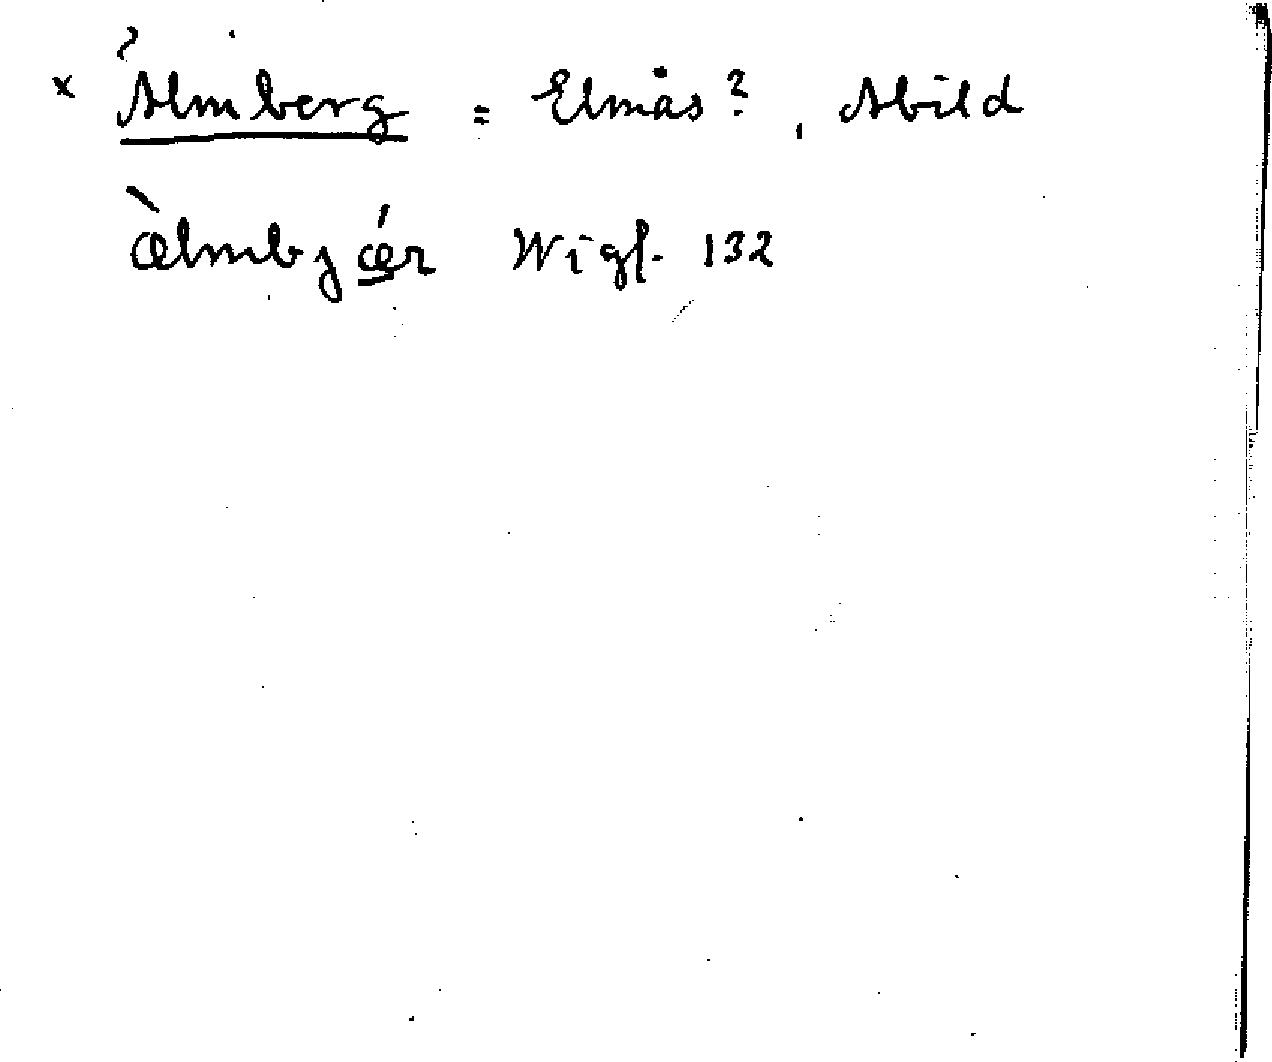 ? × Almberg = Elmås?, Abild
æ̀lmbjǽr Wigf. 132